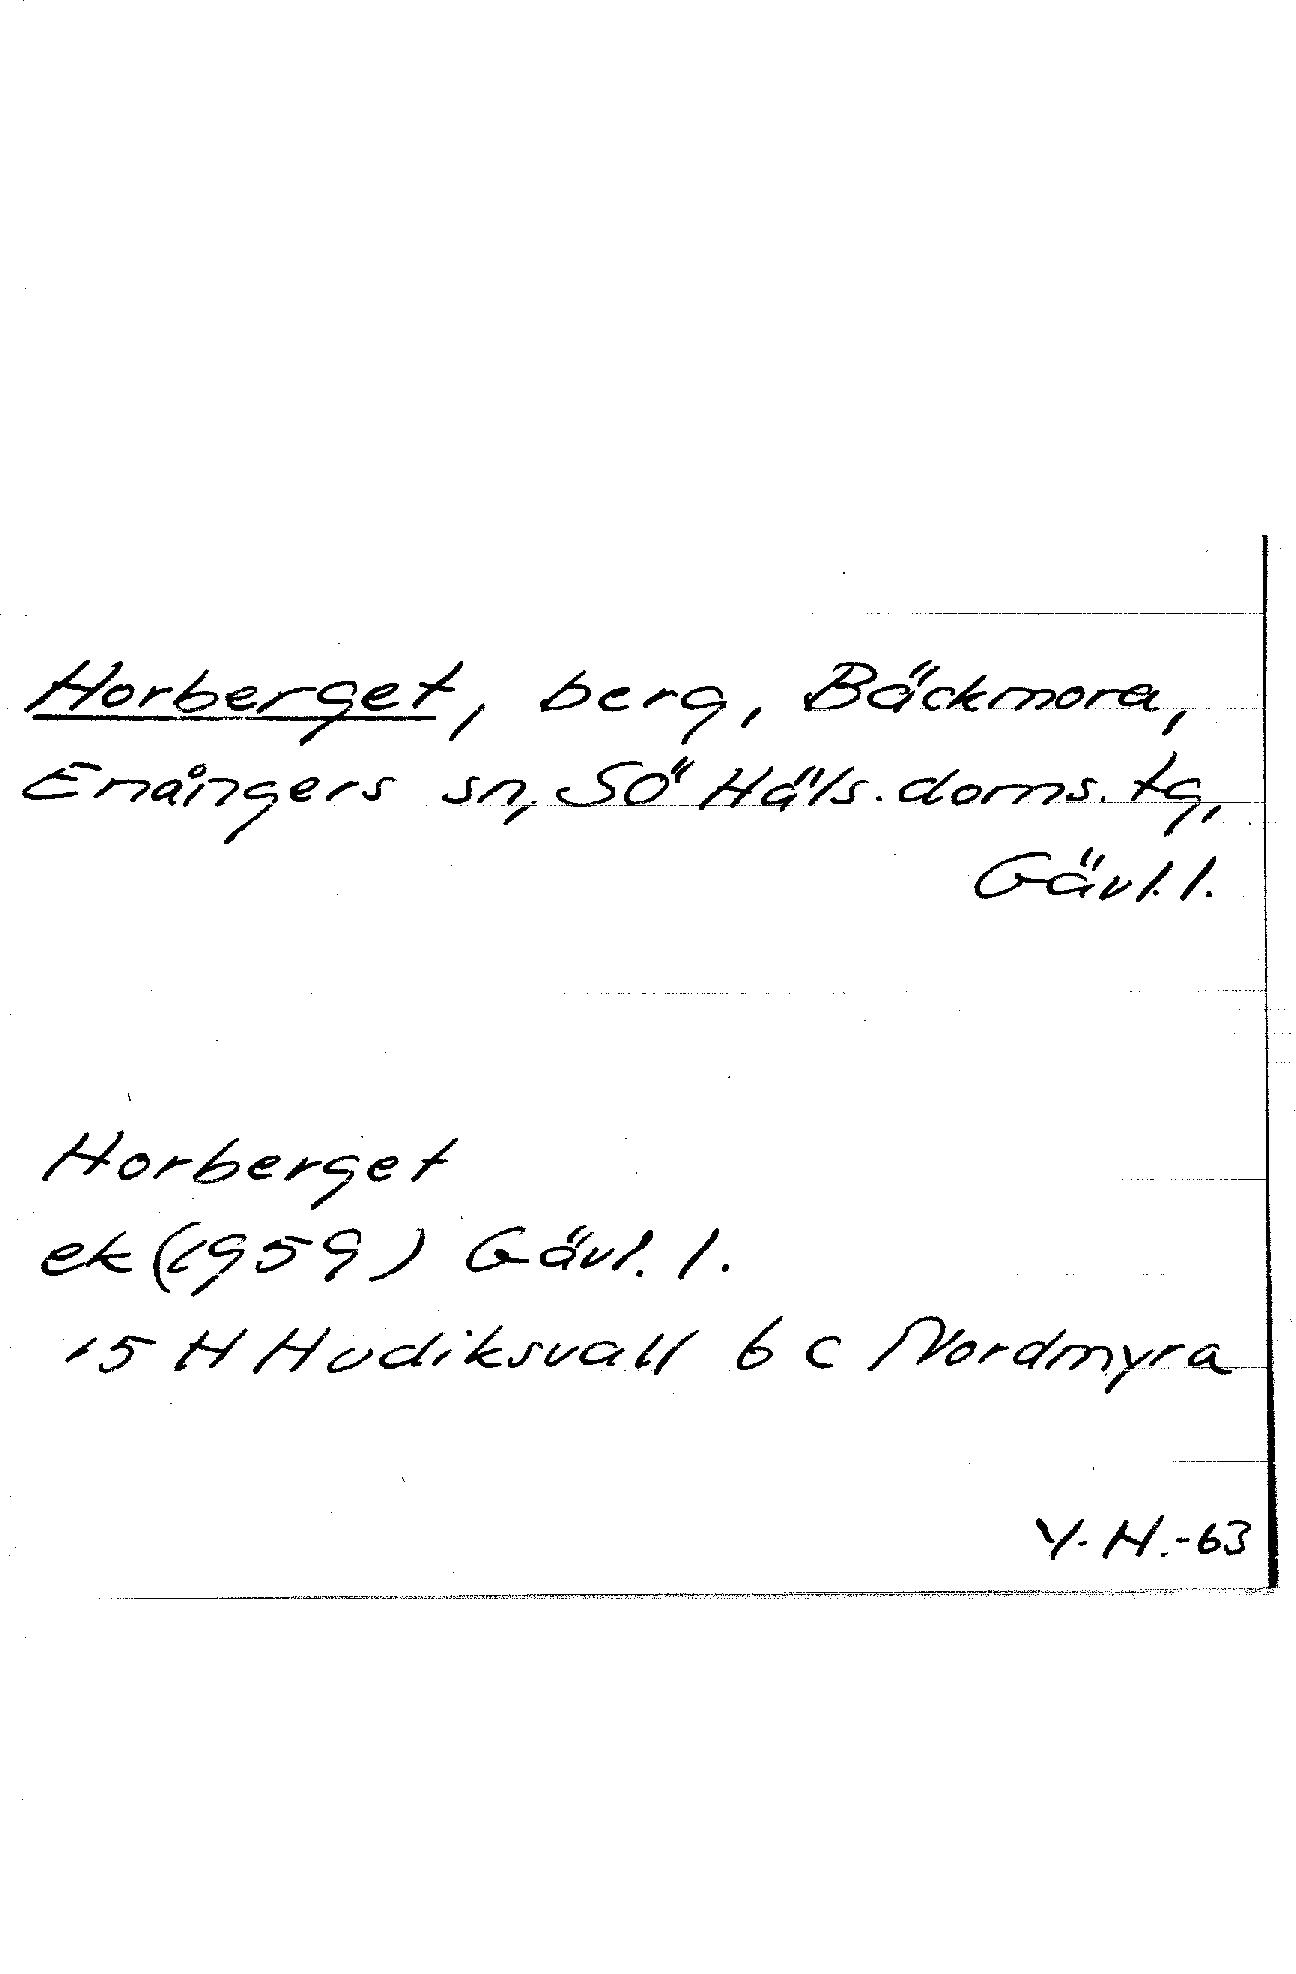 Horberget, berg, Bäckmora,
Enångers sn, SÖ Häls. doms. tg,
Gävl. l.
Horberget
ek (1959) Gävl. l.
15 H Hudiksvall 6 c Nordmyra
Y. H. -63